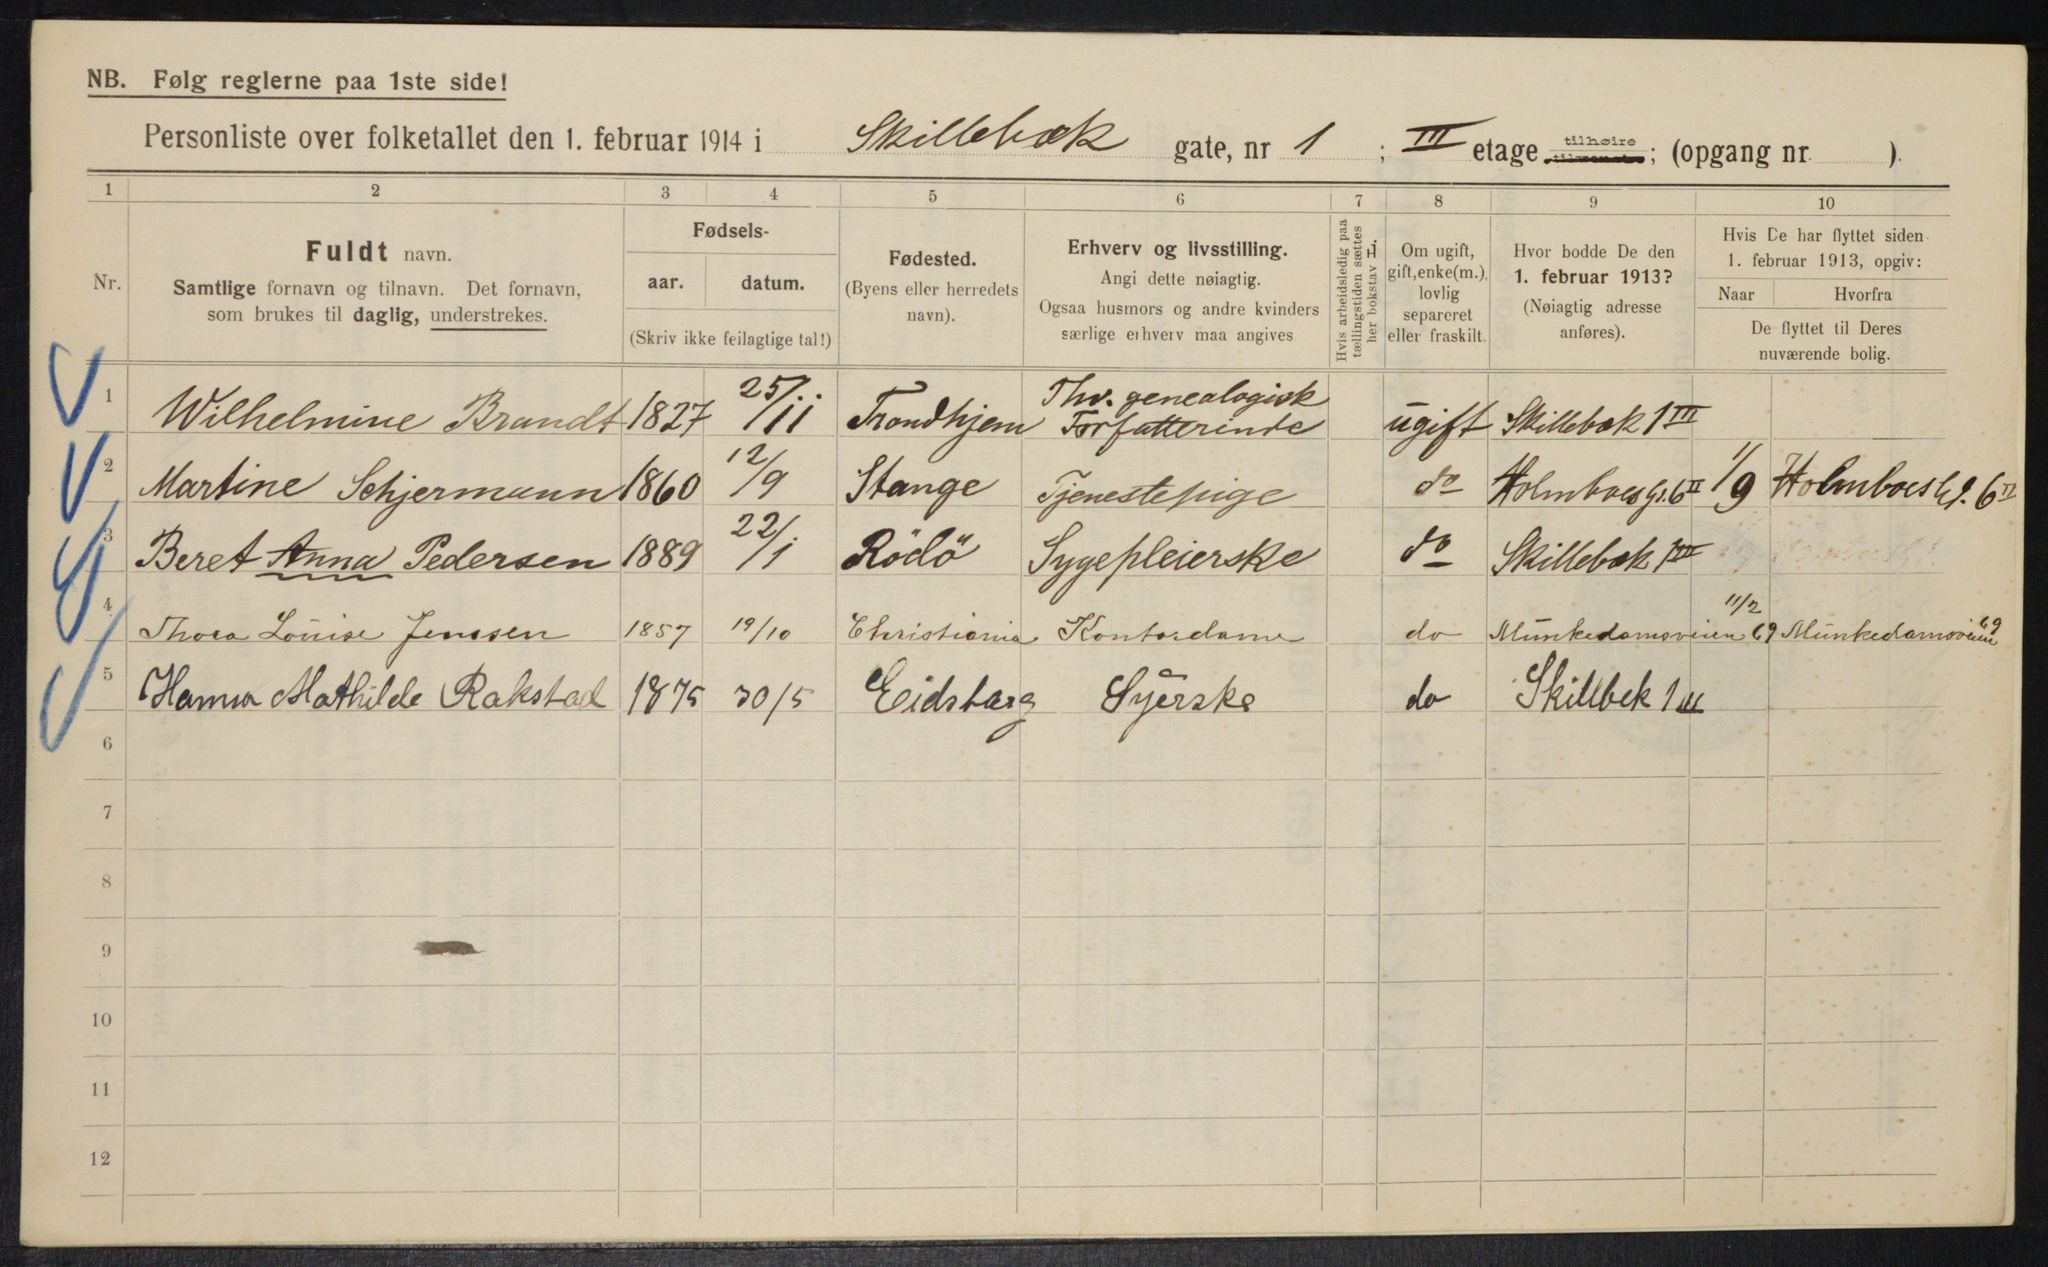 NB. Følg reglerne paa 1ste side!
Personliste over folketallet den 1. februar 1914 i Skillebæk gate, nr 1; III etage tilhøire; (opgang nr )
1 2 3 4 5 6 7 8 9 10
Nr.
Fuldt navn.
Samtlige fornavn og tilnavn. Det fornavn,
som brukes til daglig, understrekes.
Fødsels-
aar. datum.
(Skriv ikke feilagtige tal!)
Fødested.
(Byens eller herredets
navn).
Erhverv og livsstilling.
Angi dette nøiagtig.
Ogsaa husmors og andre kvinders
særlige erhverv maa angives
Hvis arbeidsledig paa
tællingstiden sættes
her bokstav H.
Om ugift,
gift, enke(m.),
lovlig
separeret
eller fraskilt.
Hvor bodde De den
1. februar 1913?
(Nøiagtig adresse
anføres).
Hvis De har flyttet siden
1. februar 1913, opgiv:
Naar Hvorfra
De flyttet til Deres
nuværende bolig.
1 Wilhelmine Brandt 1827 25/11 Trondhjem Thv. genealogisk Forfatterinde ugift Skillebæk 1 III
2 Martine Schjermann 1860 12/9 Stange Tjenestepige do Holmboesg. 6 II 1/9 Holmboes G. 6 II
3 Beret Anna Pedersen 1889 22/1 Rödö Sygepleierske do Skillebæk 1 III
4 Thora Louise Jenssen 1857 19/10 Christiania Kontordame do Munkedamsveien 69 11/2 Munkedamsveien 69
5 Hanna Mathilde Rakstad 1875 30/5 Eidsberg Syerske do Skillbek 1 III
6
7
8
9
10
11
12